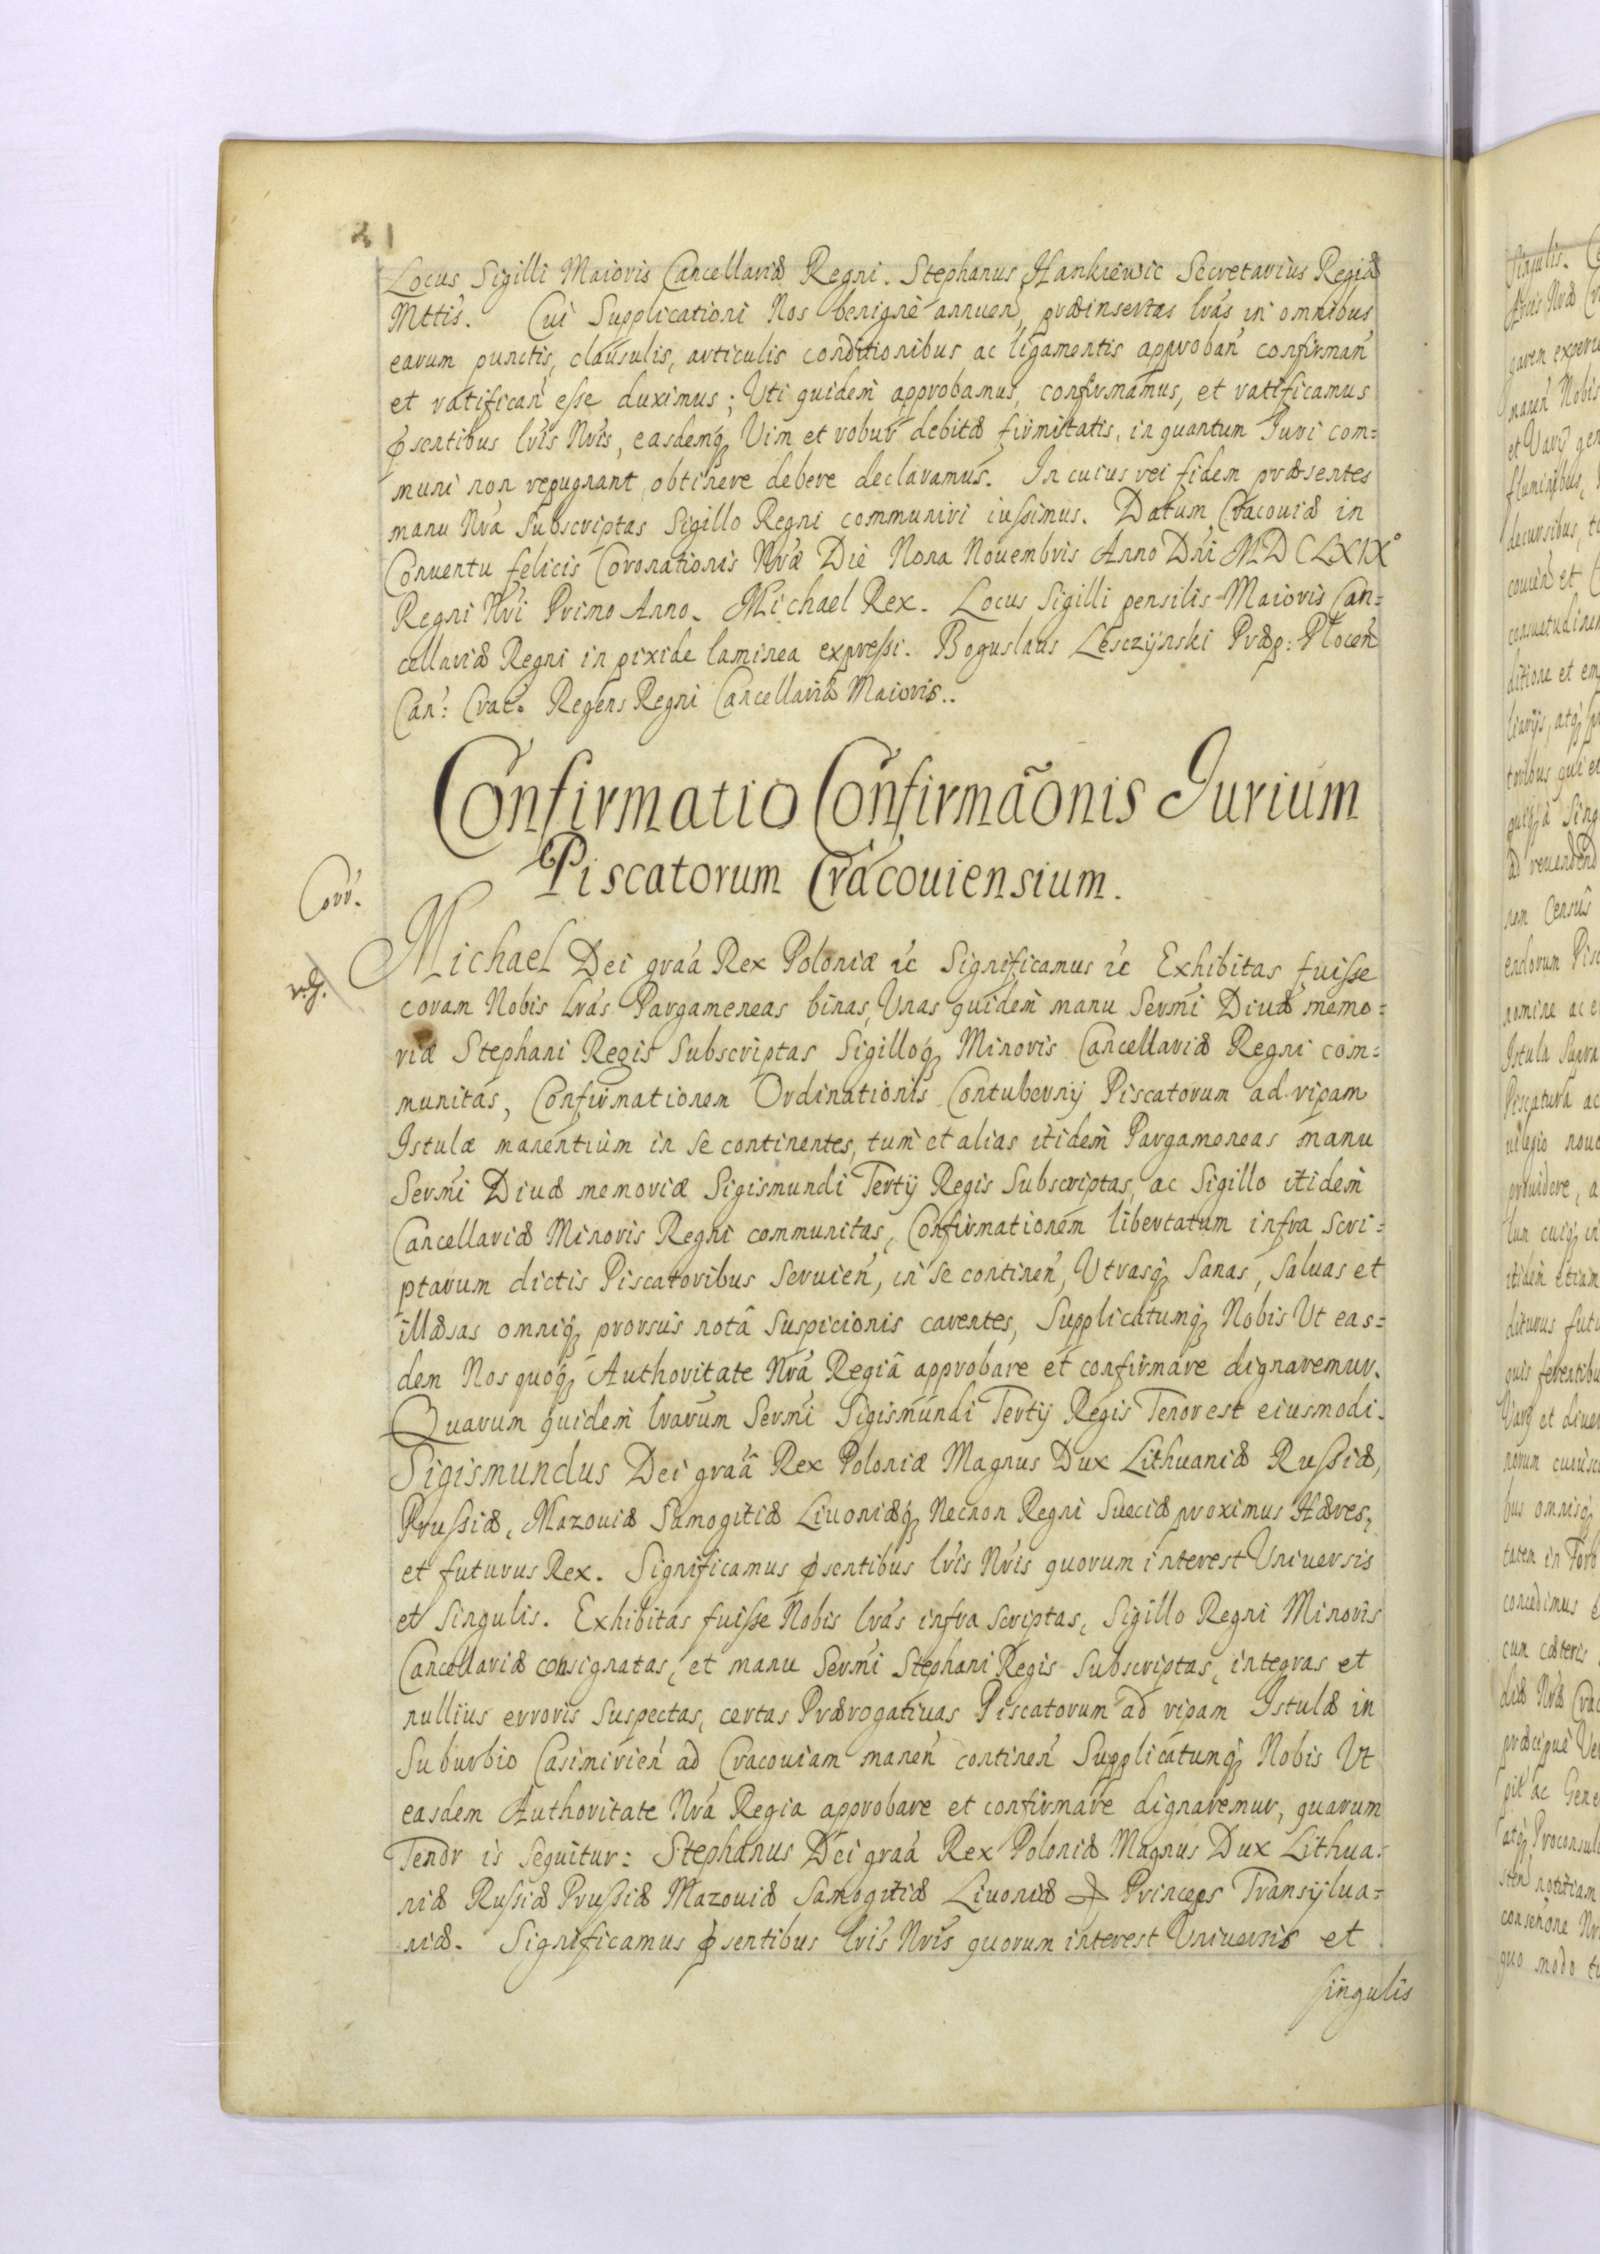 21
Locus Sigilli Maioris Cancellariæ Regni. Stephanus Hankiewic Secretarius Regiæ
Mttis. Cui Supplicationi Nos benignè annuen̄, præinsertas lrás in omnibus
earum punctis, clausulis, articulis conditionibus ac ligamentis approban̄ confirman̄
et ratifican̄ eſse duximus; Uti quidem̄ approbamus, confirmamus, et ratificamus
p̄sentibus lris Nris, easdemq̢ Vim et robur debitæ firmitatis, in quantum Juri com=
muni non repugnant, obtinere debere declaramus. In cuius rei fidem præsentes
manu Nrá Subscriptas Sigillo Regni communiri iuſsimus. Datum Cracoviæ in
Conventu felicis Coronationis Nræ Die Nona Novembris Anno Dni MDCLXIXº
Regni Nri Primo Anno. Michael Rex. Locus Sigilli pensilis Maioris Can=
cellariæ Regni in pixide laminea expreſsi. Boguslaus Lesczÿnski Præp: Plocen̄
Can: Crac. Regens Regni Cancellariæ Maioris..
Confirmatio Confirmãonis Jurium
Piscatorum Cracouiensium.
Corr.
Michael Dei graá Rex Poloniæ ꝛc Significamus ꝛc Exhibitas fuiſse
coram Nobis lrás Pargameneas binas, Unas quidem̄ manu Sermi Divæ memo=
riæ Stephani Regis Subscriptas Sigilloq̢ Minoris Cancellariæ Regni com=
munitas, Confirmationem Ordinationis Contubernÿ Piscatorum ad ripam
Istulæ manentium in se continentes, tum et alias itidem̄ Pargameneas manu
Sermi Divæ memoriæ Sigismundi Tertÿ Regis Subscriptas, ac Sigillo itidem̄
Cancellariæ Minoris Regni communitas, Confirmationem̄ libertatum infra Scri=
ptarum dictis Piscatoribus Servien̄, in se continen̄, Utrasq̢ Sanas, Salvas et
illæsas omniq̢ prorsus notâ Suspicionis carentes, Supplicatumq̢ Nobis Ut eas=
dem Nos quoq̢ Authoritate Nrá Regiâ approbare et confirmare dignaremur.
Quarum quidem̄ lrarum Sermi Sigismundi Tertÿ Regis Tenor est eiusmodi.
Sigismundus Dei graâ Rex Poloniæ Magnus Dux Lithuaniæ Ruſsiæ,
Pruſsiæ, Mazoviæ Samogitiæ Livoniæq̢ Necnon Regni Sueciæ proximus Hæres,
et futurus Rex. Significamus p̄sentibus lris Nris quorum interest Universis
et Singulis. Exhibitas fuiſse Nobis lrás infra Scriptas, Sigillo Regni Minoris
Cancellariæ consignatas, et manu Sermi Stephani Regis Subscriptas, integras et
nullius erroris Suspectas, certas Prærogativas Piscatorum ad ripam Istulæ in
Suburbio Casimirien̄ ad Cracouiam manen̄ continen̄ Supplicatumq̢ Nobis Ut
easdem Authoritate Nrá Regia approbare et confirmare dignaremur, quarum
Tenor is sequitur: Stephanus Dei graá Rex Poloniæ Magnus Dux Lithua=
niæ Ruſsiæ Pruſsiæ Mazoviæ Samogitiæ Livoniæ Princeps Transÿlva=
niæ. Significamus p̄sentibus lris Nris quorum interest Universis et
singulis